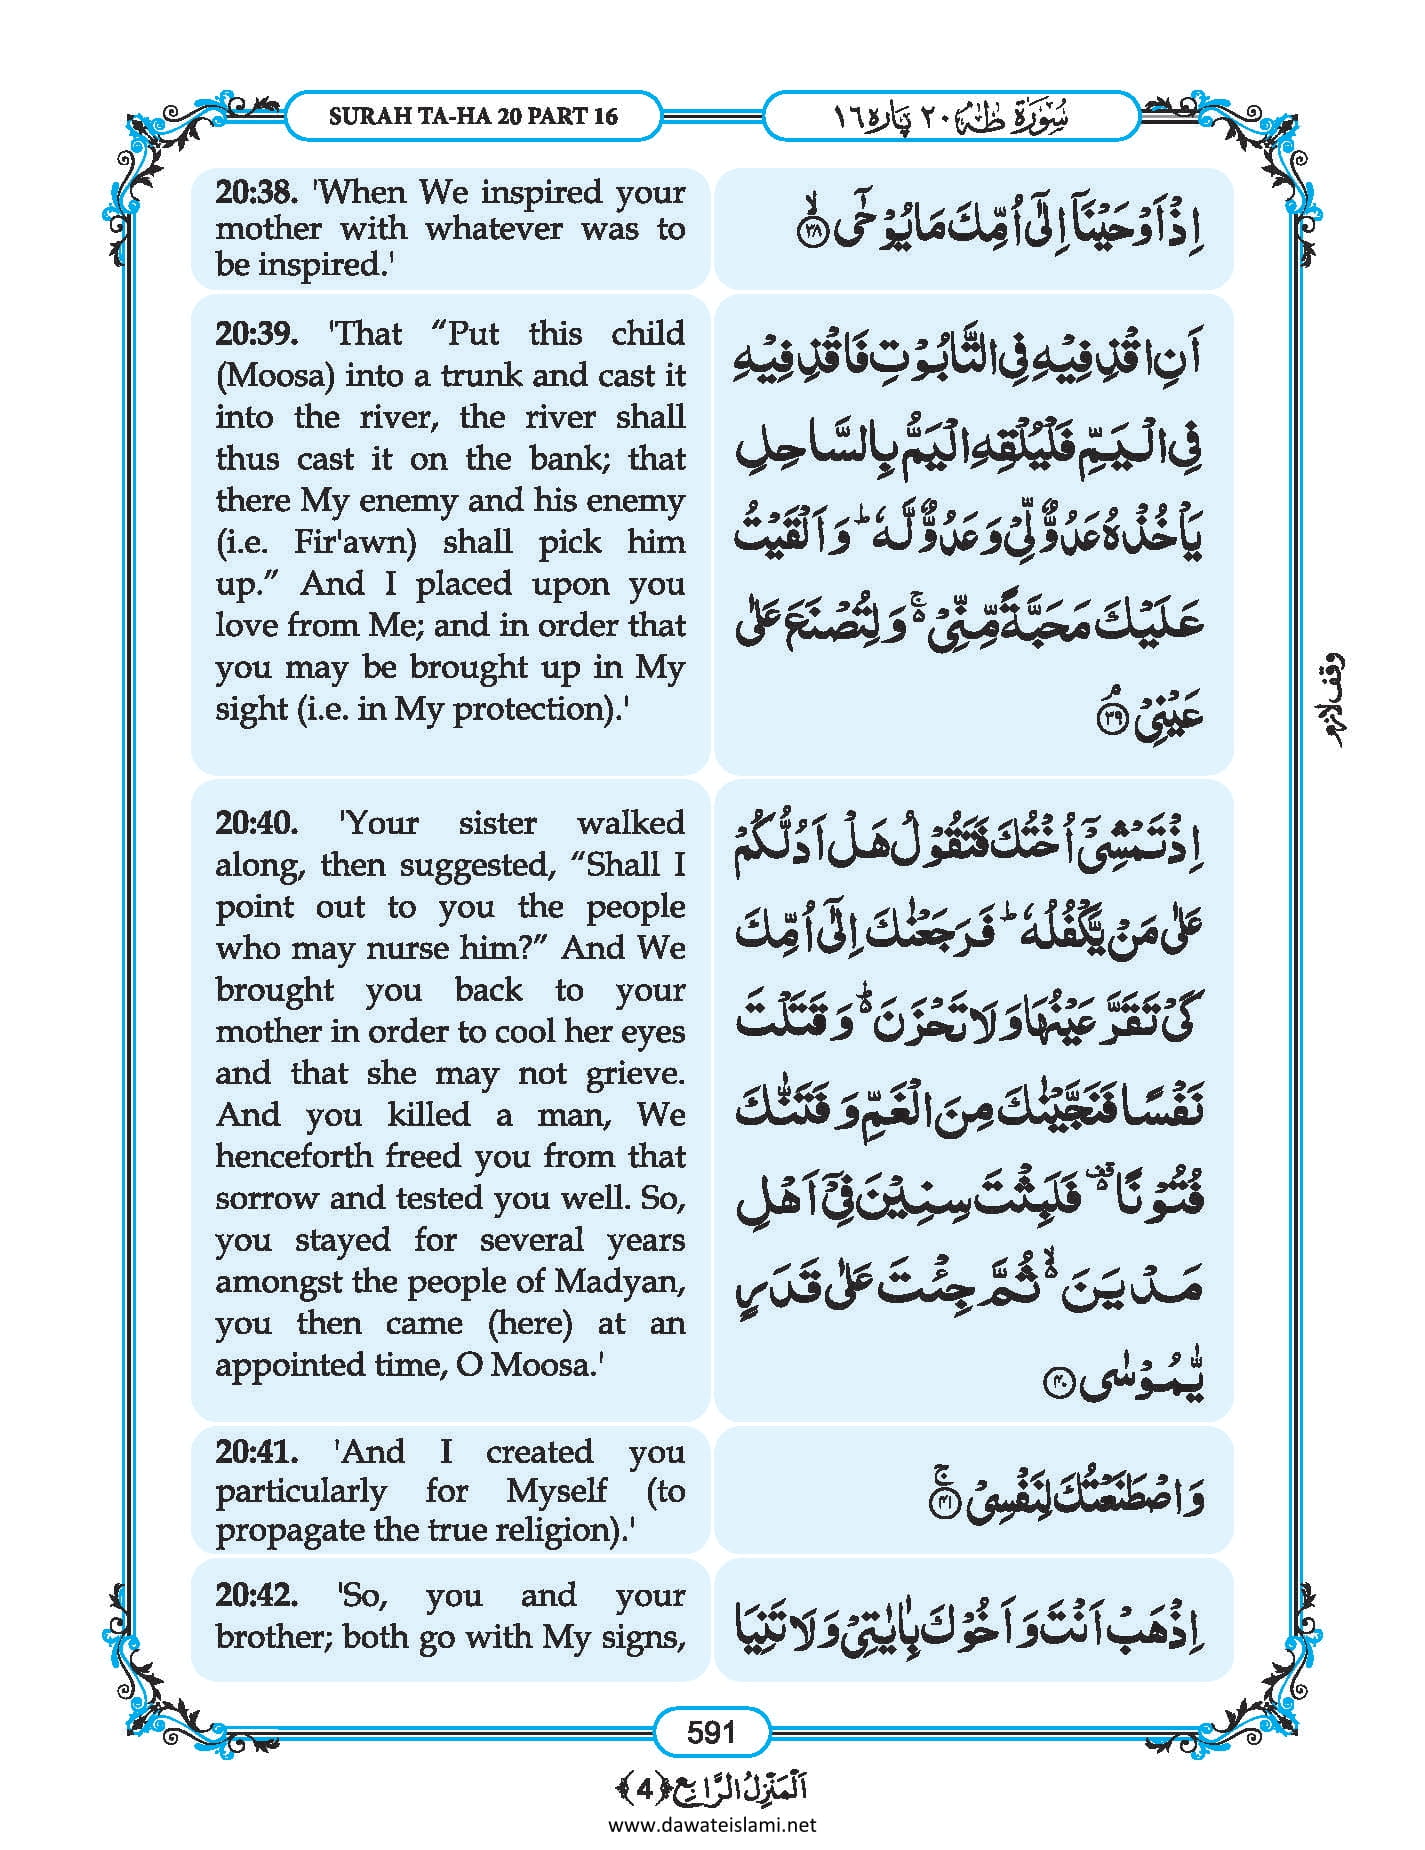 SURAH TA-HA 20 PART 16
سُوْرَۃ طٰہٰ ٢٠ پارہ ١٦
20:38. 'When We inspired your
mother with whatever was to
be inspired.'
اِذْ اَوْحَیْنَاۤ اِلٰۤی اُمِّكَ مَا یُوْحٰۤی ۙ﴿۳۸﴾
20:39. 'That “Put this child
(Moosa) into a trunk and cast it
into the river, the river shall
thus cast it on the bank; that
there My enemy and his enemy
(i.e. Fir'awn) shall pick him
up.” And I placed upon you
love from Me; and in order that
you may be brought up in My
sight (i.e. in My protection).'
اَنِ اقْذِفِیْهِ فِی التَّابُوْتِ فَاقْذِفِیْهِ
فِی الْیَمِّ فَلْیُلْقِهِ الْیَمُّ بِالسَّاحِلِ
یَاْخُذْهُ عَدُوٌّ لِّیْ وَ عَدُوٌّ لَّهٗ ؕ وَ اَلْقَیْتُ
عَلَیْكَ مَحَبَّةً مِّنِّیْ ۬ۚ وَ لِتُصْنَعَ عَلٰی
عَیْنِیْ ۘ﴿۳۹﴾
وقف لازم
20:40. 'Your sister walked
along, then suggested, “Shall I
point out to you the people
who may nurse him?” And We
brought you back to your
mother in order to cool her eyes
and that she may not grieve.
And you killed a man, We
henceforth freed you from that
sorrow and tested you well. So,
you stayed for several years
amongst the people of Madyan,
you then came (here) at an
appointed time, O Moosa.'
اِذْ تَمْشِیْۤ اُخْتُكَ فَتَقُوْلُ هَلْ اَدُلُّكُمْ
عَلٰی مَنْ یَّكْفُلُهٗ ؕ فَرَجَعْنٰكَ اِلٰۤی اُمِّكَ
كَیْ تَقَرَّ عَیْنُهَا وَ لَا تَحْزَنَ ۬ؕ وَ قَتَلْتَ
نَفْسًا فَنَجَّیْنٰكَ مِنَ الْغَمِّ وَ فَتَنّٰكَ
فُتُوْنًا ۬۟ فَلَبِثْتَ سِنِیْنَ فِیْۤ اَهْلِ
مَدْیَنَ ۬ۙ ثُمَّ جِئْتَ عَلٰی قَدَرٍ
یّٰمُوْسٰی ﴿۴۰﴾
20:41. 'And I created you
particularly for Myself (to
propagate the true religion).'
وَ اصْطَنَعْتُكَ لِنَفْسِیْ ۚ﴿۴۱﴾
20:42. 'So, you and your
brother; both go with My signs,
اِذْهَبْ اَنْتَ وَ اَخُوْكَ بِاٰیٰتِیْ وَ لَا تَنِیَا
591
اَلْمَنْزِلُ الرَّابِع ﴿4﴾
www.dawateislami.net